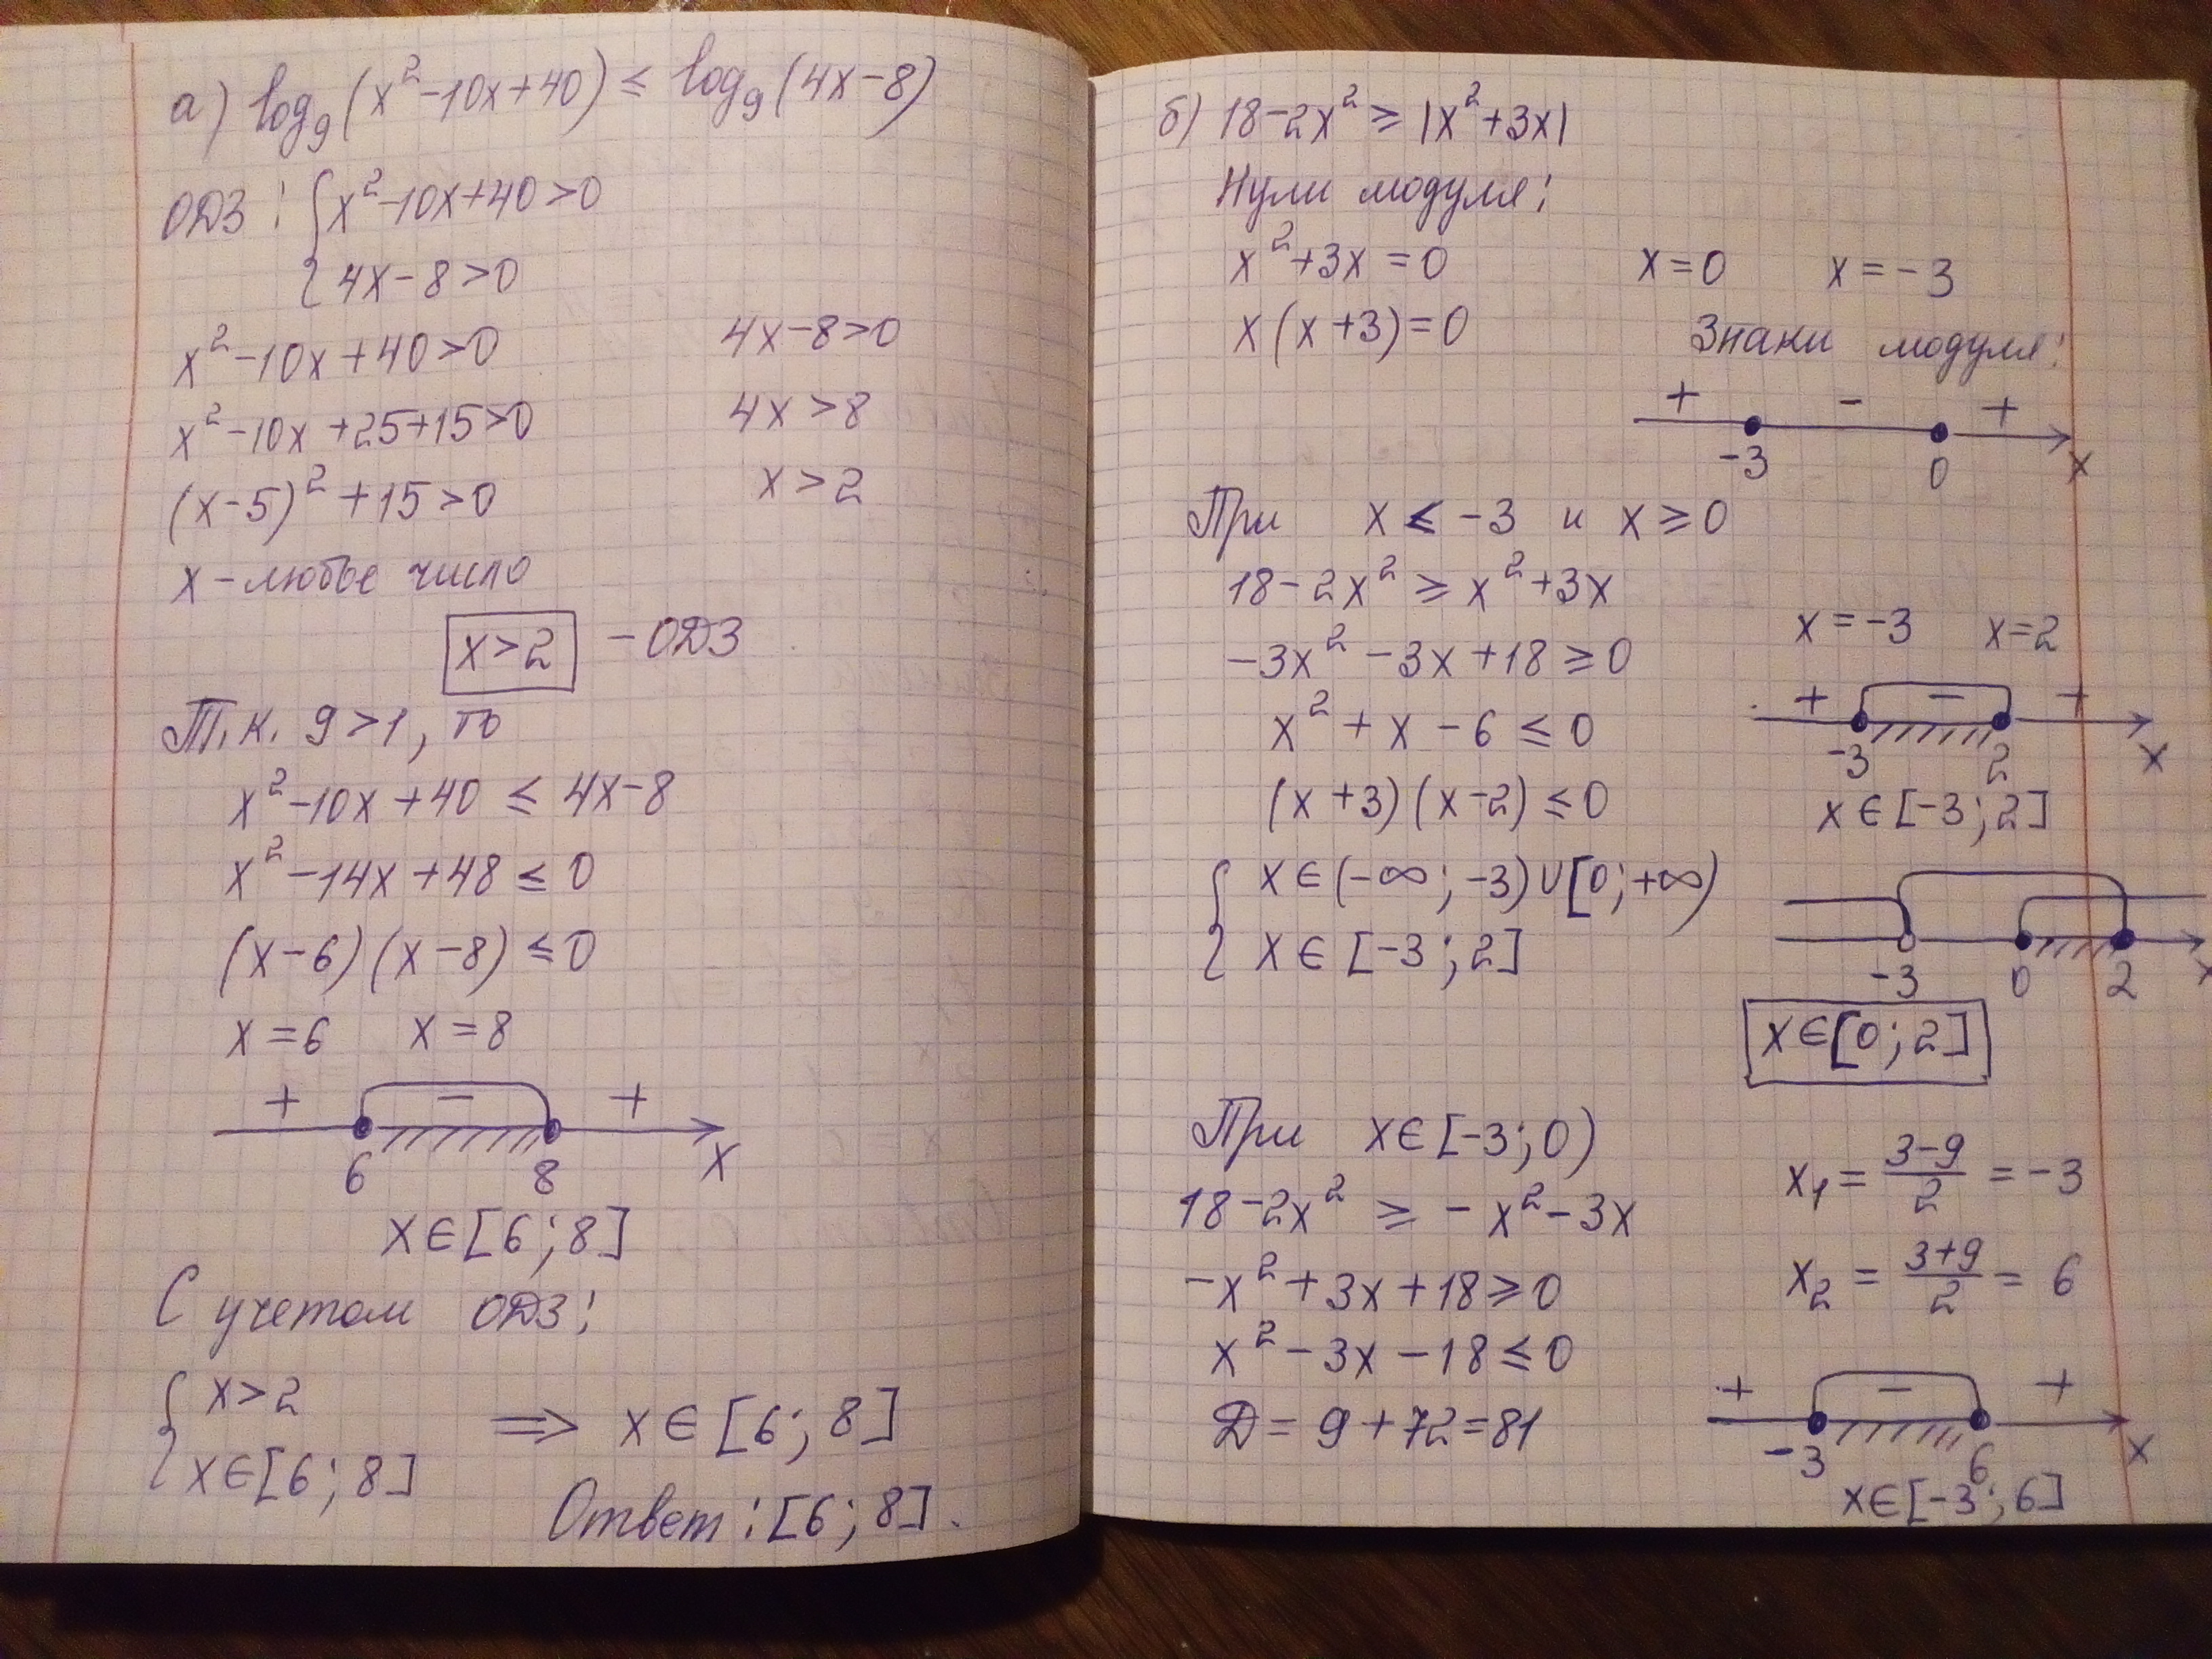 а) log₉(x²-10x+40) ≤ log₉(4x-8)
ОДЗ: { x²-10x+40>0
4x-8>0
x²-10x+40>0
4x-8>0
x²-10x+25+15>0
4x>8
(x-5)²+15>0
x>2
x-любое число
x>2 - ОДЗ
Т.к. 9>1, то
x²-10x+40 ≤ 4x-8
x²-14x+48 ≤ 0
(x-6)(x-8) ≤ 0
x=6 x=8
+ - +
6 8 x
x∈[6;8]
С учетом ОДЗ:
{ x>2
x∈[6;8]
⇒ x∈[6;8]
Ответ: [6;8].
б) 18-2x² ≥ |x²+3x|
Нули модуля:
x²+3x=0 x=0 x=-3
x(x+3)=0
Знаки модуля:
+ - +
-3 0 x
При x < -3 и x ≥ 0
18-2x² ≥ x²+3x
-3x²-3x+18 ≥ 0
x²+x-6 ≤ 0
(x+3)(x-2) ≤ 0
x=-3 x=2
+ - +
-3 2 x
x∈[-3;2]
{ x∈(-∞;-3)∪[0;+∞)
x∈[-3;2]
-3 0 2 x
x∈[0;2]
При x∈[-3;0)
18-2x² ≥ -x²-3x
-x²+3x+18 ≥ 0
x²-3x-18 ≤ 0
Д=9+72=81
x₁ = (3-9)/2 = -3
x₂ = (3+9)/2 = 6
+ - +
-3 6 x
x∈[-3;6]